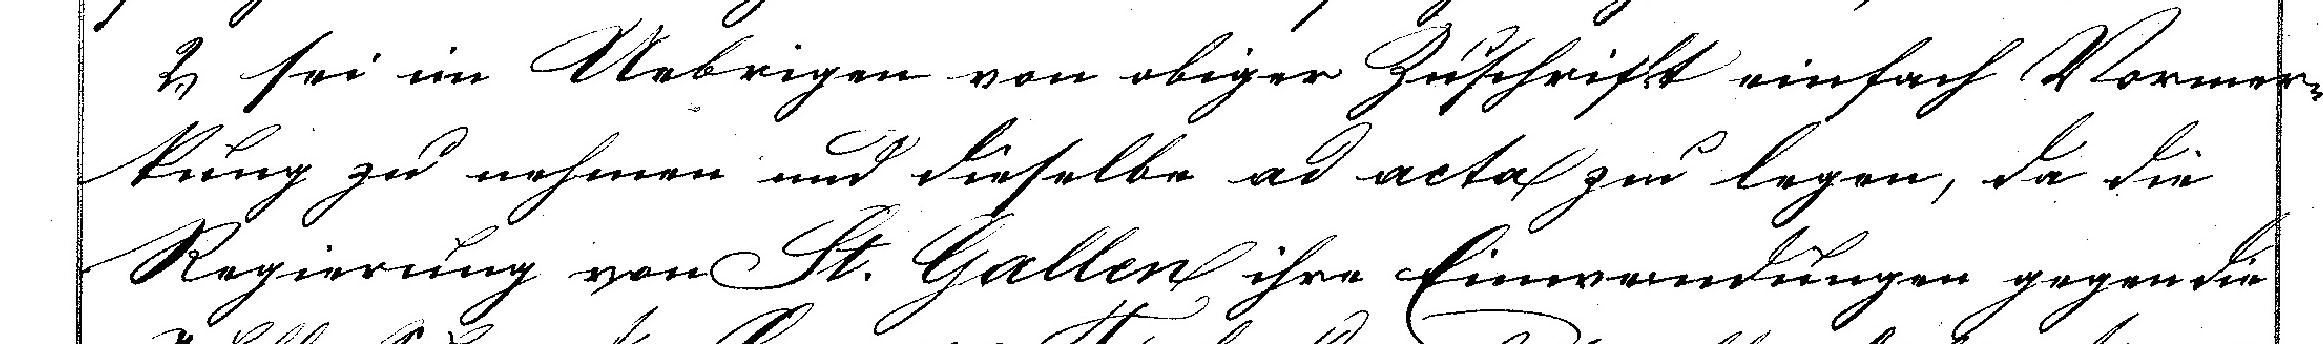 2, sei im Uebrigen von obiger Zuschrift einfach Vormer-
kung zu nehmen und dieselbe ad acta zu legen, da die
Regierung von St. Gallen ihre Einwendungen gegen die